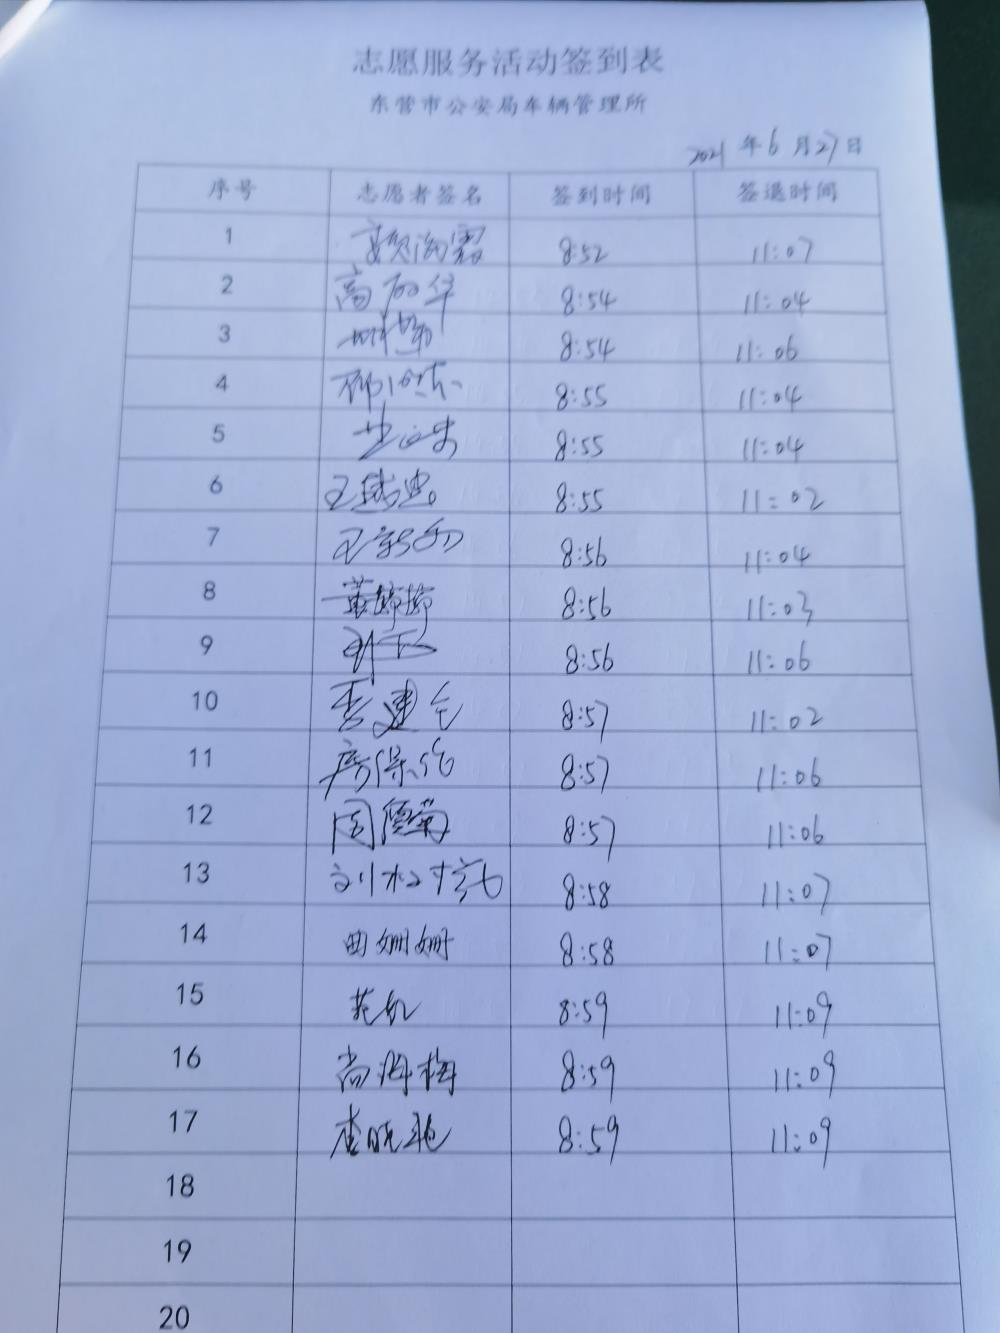 志愿服务活动签到表
东营市公安局车辆管理所
2021 年 6 月 27 日
序号 志愿者签名 签到时间 签退时间
1 8:52 11:07
2 高丽华 8:54 11:04
3 8:54 11:06
4 8:55 11:04
5 8:55 11:04
6 王 8:55 11:02
7 王 8:56 11:04
8 董婷婷 8:56 11:03
9 8:56 11:06
10 李建 8:57 11:02
11 8:57 11:06
12 周 8:57 11:06
13 刘 8:58 11:07
14 曲姗姗 8:58 11:07
15 8:59 11:09
16 尚海梅 8:59 11:09
17 李晓艳 8:59 11:09
18
19
20